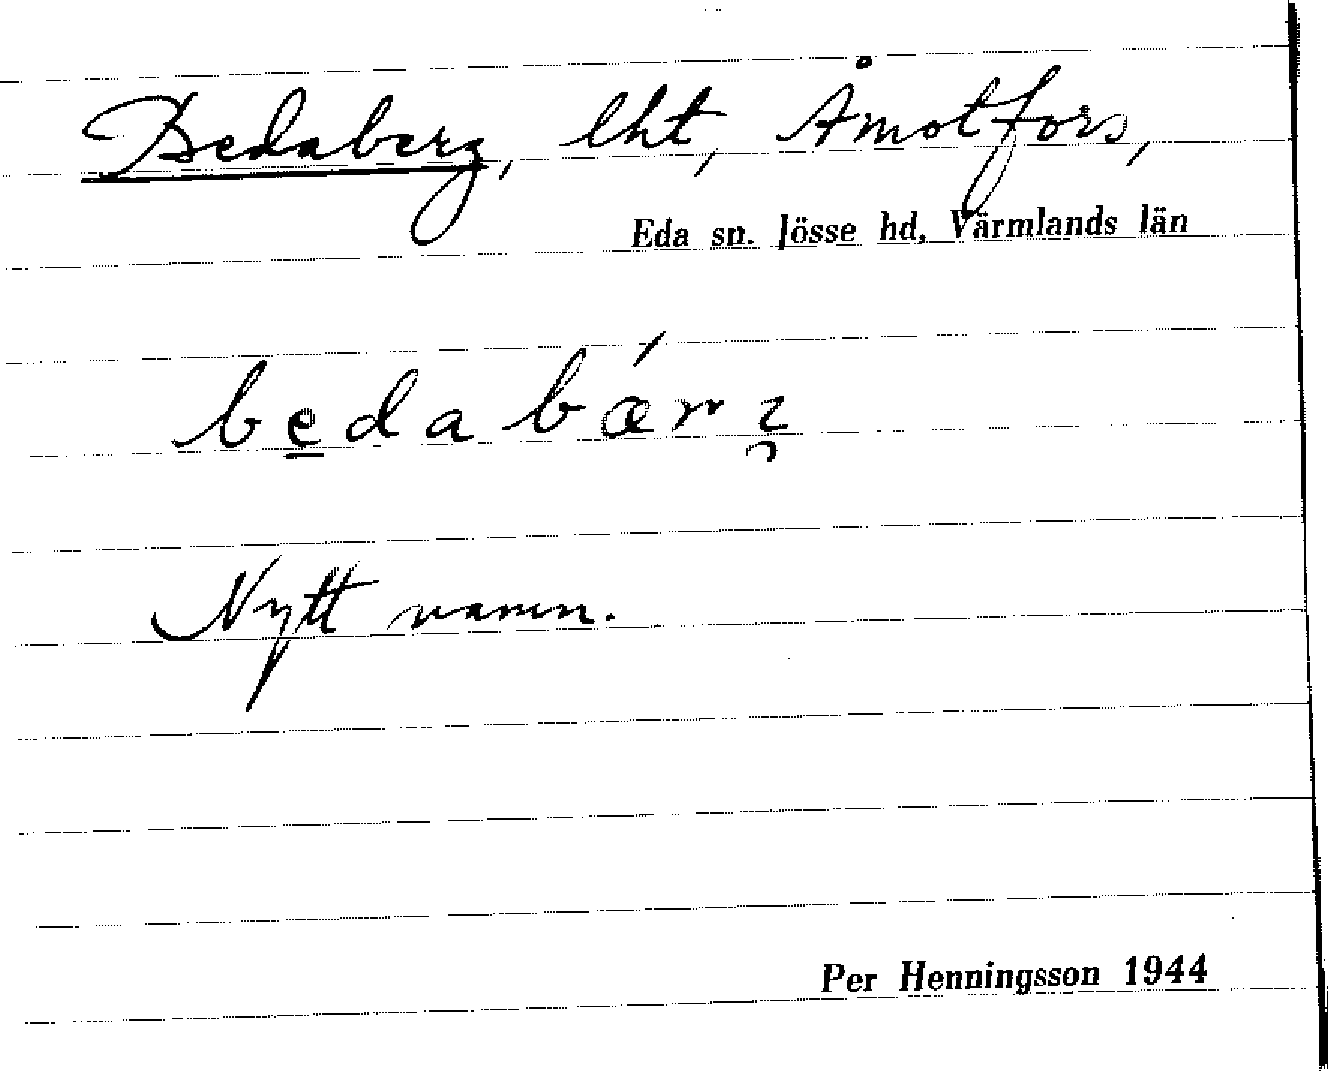 Bedaberg, lht, Åmotfors,
Eda sn. Jösse hd, Värmlands län
Nytt namn.
Per Henningsson 1944